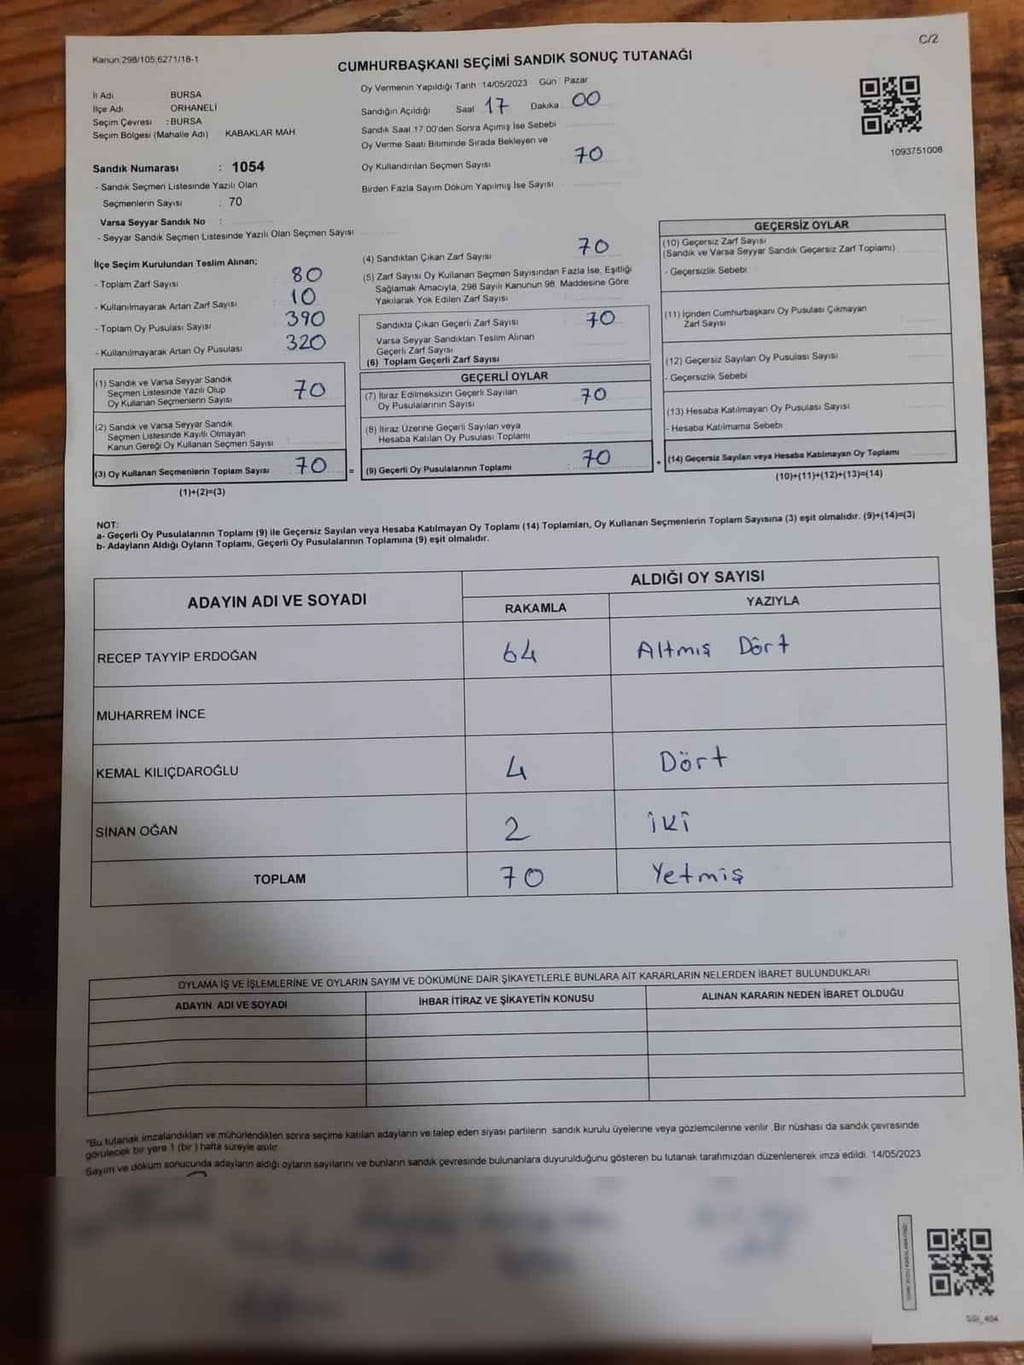 C/2
Kanun:298/105,6271/18-1
CUMHURBAŞKANI SEÇİMİ SANDIK SONUÇ TUTANAĞI
İl Adı BURSA
İlçe Adı ORHANELİ
Seçim Çevresi : BURSA
Seçim Bölgesi (Mahalle Adı) KABAKLAR MAH
Sandık Numarası : 1054
- Sandık Seçmen Listesinde Yazılı Olan
Seçmenlerin Sayısı : 70
Varsa Seyyar Sandık No :
- Seyyar Sandık Seçmen Listesinde Yazılı Olan Seçmen Sayısı
Oy Vermenin Yapıldığı Tarih 14/05/2023 Gün Pazar
Sandığın Açıldığı Saat 17 Dakika 00
Sandık Saat 17.00'den Sonra Açımış İse Sebebi
Oy Verme Saati Bitiminde Sırada Bekleyen ve
Oy Kullandırılan Seçmen Sayısı 70
Birden Fazla Sayım Döküm Yapılmış İse Sayısı
1093751008
İlçe Seçim Kurulundan Teslim Alınan;
- Toplam Zarf Sayısı 80
- Kullanılmayarak Artan Zarf Sayısı 10
- Toplam Oy Pusulası Sayısı 390
- Kullanılmayarak Artan Oy Pusulası 320
(1) Sandık ve Varsa Seyyar Sandık
Seçmen Listesinde Yazılı Olup
Oy Kullanan Seçmenlerin Sayısı 70
(2) Sandık ve Varsa Seyyar Sandık
Seçmen Listesinde Kayıtlı Olmayan
Kanun Gereği Oy Kullanan Seçmen Sayısı
(3) Oy Kullanan Seçmenlerin Toplam Sayısı 70 =
(1)+(2)=(3)
(4) Sandıktan Çıkan Zarf Sayısı 70
(5) Zarf Sayısı Oy Kullanan Seçmen Sayısından Fazla İse, Eşitliği
Sağlamak Amacıyla, 298 Sayılı Kanunun 98. Maddesine Göre
Yakılarak Yok Edilen Zarf Sayısı
Sandıkta Çıkan Geçerli Zarf Sayısı 70
Varsa Seyyar Sandıktan Teslim Alınan
Geçerli Zarf Sayısı
(6) Toplam Geçerli Zarf Sayısı
GEÇERLİ OYLAR
(7) İtiraz Edilmeksizin Geçerli Sayılan
Oy Pusulalarının Sayısı 70
(8) İtiraz Üzerine Geçerli Sayılan veya
Hesaba Katılan Oy Pusulası Toplamı
(9) Geçerli Oy Pusulalarının Toplamı : 70 +
GEÇERSİZ OYLAR
(10) Geçersiz Zarf Sayısı
(Sandık ve Varsa Seyyar Sandık Geçersiz Zarf Toplamı)
- Geçersizlik Sebebi
(11) İçinden Cumhurbaşkanı Oy Pusulası Çıkmayan
Zarf Sayısı
(12) Geçersiz Sayılan Oy Pusulası Sayısı
- Geçersizlik Sebebi
(13) Hesaba Katılmayan Oy Pusulası Sayısı
- Hesaba Katılmama Sebebi
(14) Geçersiz Sayılan veya Hesaba Katılmayan Oy Toplamı
(10)+(11)+(12)+(13)=(14)
NOT:
a- Geçerli Oy Pusulalarının Toplamı (9) ile Geçersiz Sayılan veya Hesaba Katılmayan Oy Toplamı (14) Toplamları, Oy Kullanan Seçmenlerin Toplam Sayısına (3) eşit olmalıdır. (9)+(14)=(3)
b- Adayların Aldığı Oyların Toplamı, Geçerli Oy Pusulalarının Toplamına (9) eşit olmalıdır.
ADAYIN ADI VE SOYADI ALDIĞI OY SAYISI
RAKAMLA YAZIYLA
RECEP TAYYİP ERDOĞAN 64 Altmış Dört
MUHARREM İNCE
KEMAL KILIÇDAROĞLU 4 Dört
SİNAN OĞAN 2 İKİ
TOPLAM 70 Yetmiş
OYLAMA İŞ VE İŞLEMLERİNE VE OYLARIN SAYIM VE DÖKÜMÜNE DAİR ŞİKAYETLERLE BUNLARA AİT KARARLARIN NELERDEN İBARET BULUNDUKLARI
ADAYIN ADI VE SOYADI İHBAR İTİRAZ VE ŞİKAYETİN KONUSU ALINAN KARARIN NEDEN İBARET OLDUĞU
"Bu tutanak imzalandıktan ve mühürlendikten sonra seçime katılan adayların ve talep eden siyasi partilerin sandık kurulu üyelerine veya gözlemcilerine verilir. Bir nüshası da sandık çevresinde
görülecek bir yere 1 (bir) hafta süreyle asılır.
Sayım ve döküm sonucunda adayların aldığı oyların sayılarını ve bunların sandık çevresinde bulunanlara duyurulduğunu gösteren bu tutanak tarafımızdan düzenlenerek imza edildi. 14/05/2023